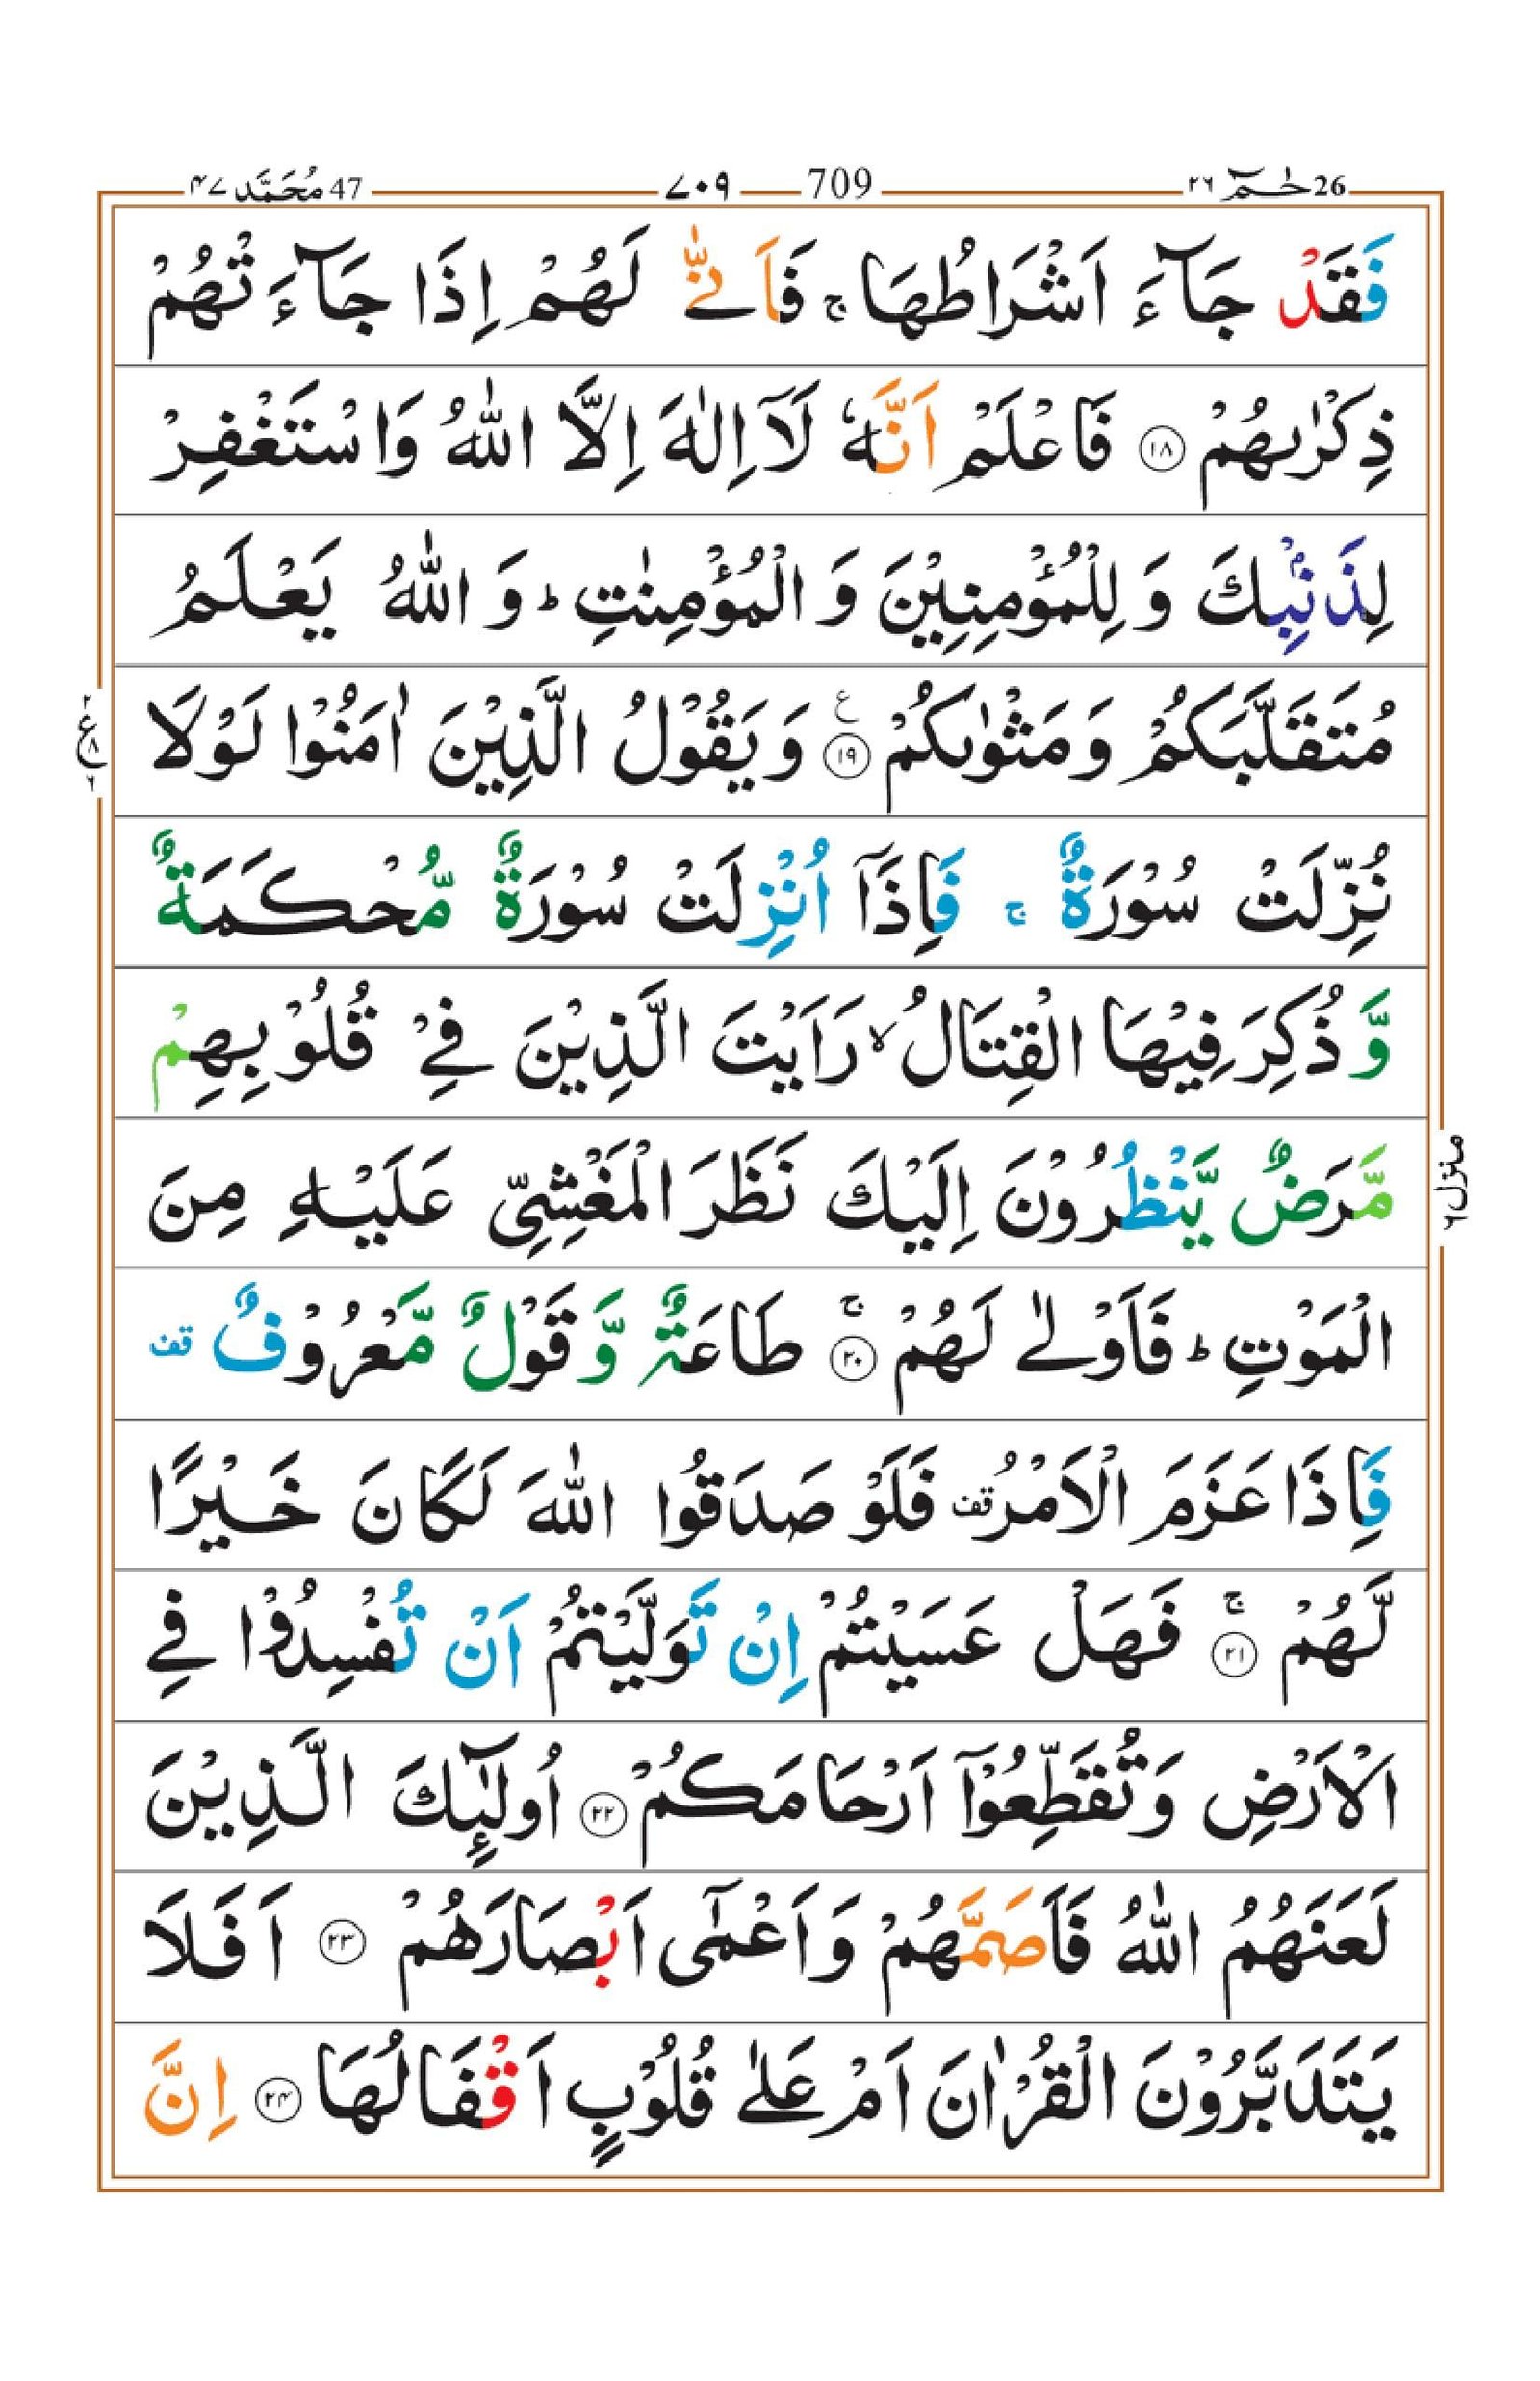 حٰمٓ 26 ٢٦ 709 ٧٠٩ مُحَمَّد 47 ٤٧
فَقَدْ جَآءَ اَشْرَاطُهَا ۚ فَاَنّٰى لَهُمْ اِذَا جَآءَتْهُمْ
ذِكْرٰىهُمْ ۝١٨ فَاعْلَمْ اَنَّهٗ لَاۤ اِلٰهَ اِلَّا اللّٰهُ وَاسْتَغْفِرْ
لِذَنْۢبِكَ وَ لِلْمُؤْمِنِيْنَ وَ الْمُؤْمِنٰتِ ؕ وَ اللّٰهُ يَعْلَمُ
مُتَقَلَّبَكُمْ وَ مَثْوٰىكُمْ ۝١٩ ع وَ يَقُوْلُ الَّذِيْنَ اٰمَنُوْا لَوْلَا
٢ ع ٨ ٦
نُزِّلَتْ سُوْرَةٌ ۚ فَاِذَاۤ اُنْزِلَتْ سُوْرَةٌ مُّحْكَمَةٌ
وَّ ذُكِرَ فِيْهَا الْقِتَالُ ۙ رَاَيْتَ الَّذِيْنَ فِيْ قُلُوْبِهِمْ
مَّرَضٌ يَّنْظُرُوْنَ اِلَيْكَ نَظَرَ الْمَغْشِيِّ عَلَيْهِ مِنَ
منزل ٦
الْمَوْتِ ؕ فَاَوْلٰى لَهُمْ ۝٢٠ ۚ طَاعَةٌ وَّ قَوْلٌ مَّعْرُوْفٌ قف
فَاِذَا عَزَمَ الْاَمْرُ قف فَلَوْ صَدَقُوا اللّٰهَ لَكَانَ خَيْرًا
لَّهُمْ ۝٢١ ۚ فَهَلْ عَسَيْتُمْ اِنْ تَوَلَّيْتُمْ اَنْ تُفْسِدُوْا فِي
الْاَرْضِ وَ تُقَطِّعُوْۤا اَرْحَامَكُمْ ۝٢٢ اُولٰٓئِكَ الَّذِيْنَ
لَعَنَهُمُ اللّٰهُ فَاَصَمَّهُمْ وَ اَعْمٰۤى اَبْصَارَهُمْ ۝٢٣ اَفَلَا
يَتَدَبَّرُوْنَ الْقُرْاٰنَ اَمْ عَلٰى قُلُوْبٍ اَقْفَالُهَا ۝٢٤ اِنَّ